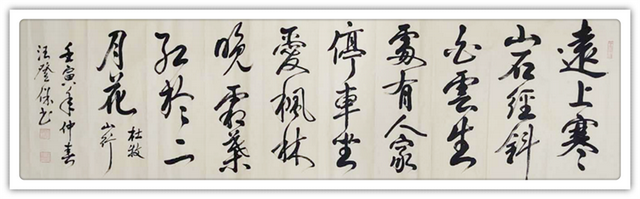 遠上寒
山石經斜
白雲生
處有人家
停車坐
愛楓林
晚霜葉
紅於二
月花
杜牧
山行
壬寅年仲春
汪登保书